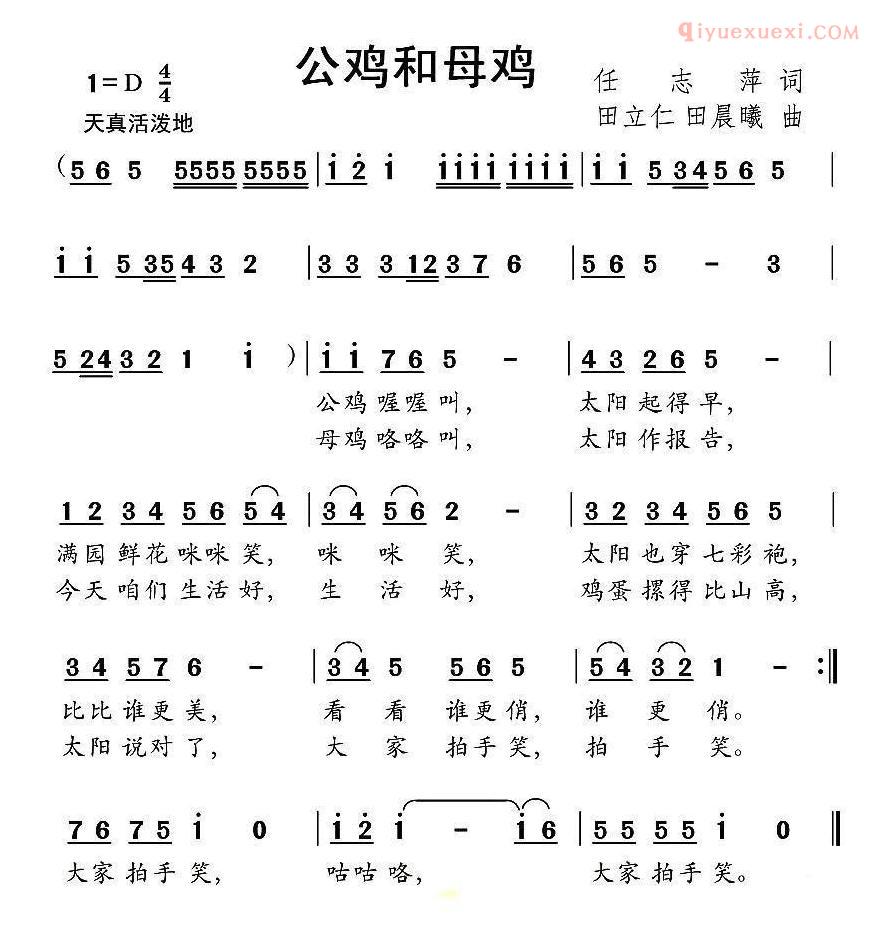 qiyuexuexi.com
公鸡和母鸡
1=D 4/4
任志萍 词
天真活泼地
田立仁 田晨曦 曲
(5 6 5 5555 5555 | i 2 i iiii iiii | i i 5 34 5 6 5 |
i i 5 35 4 3 2 | 3 3 3 12 3 7 6 | 5 6 5 - 3 |
5 24 3 2 1 i ) | i i 7 6 5 - | 4 3 2 6 5 - |
公鸡 喔喔 叫, 太阳 起得 早,
母鸡 咯咯 叫, 太阳 作报 告,
1 2 3 4 5 6 5 4 | 3 4 5 6 2 - | 3 2 3 4 5 6 5 |
满园 鲜花 咪咪 笑, 咪 咪 笑, 太阳 也穿 七彩 袍,
今天 咱们 生活 好, 生 活 好, 鸡蛋 摞得 比山 高,
3 4 5 7 6 - | 3 4 5 5 6 5 | 5 4 3 2 1 - :||
比比 谁更 美, 看 看 谁更 俏, 谁 更 俏。
太阳 说对 了, 大 家 拍手 笑, 拍 手 笑。
7 6 7 5 i 0 | i 2 i - i 6 | 5 5 5 5 i 0 ||
大家 拍手 笑, 咕咕 咯, 大家 拍手 笑。